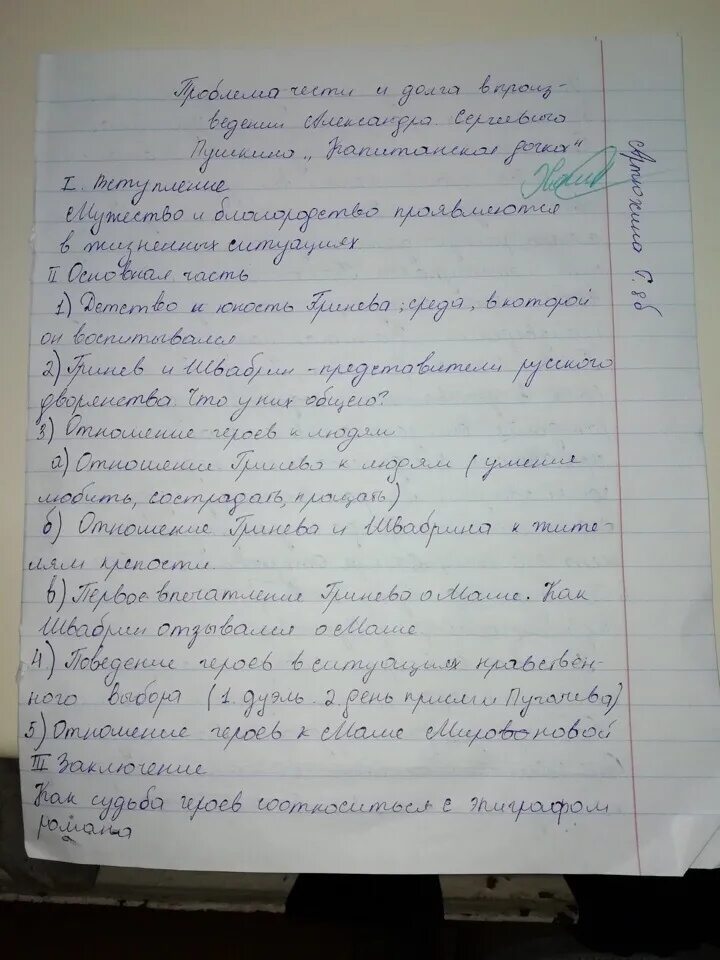 Проблема чести и долга в произ-
ведении Александра Сергеевича
Пушкина „Капитанская дочка"
I. Вступление
Мужество и благородство проявляются
в жизненных ситуациях
II Основная часть
1) Детство и юность Гринева; среда, в которой
он воспитывался
2) Гринев и Швабрин - представители русского
дворянства. Что у них общего?
3) Отношение героев к людям
а) Отношение Гринева к людям (умение
любить, сострадать, прощать)
б) Отношение Гринева и Швабрина к жите-
лям крепости.
в) Первое впечатление Гринева о Маше. Как
Швабрин отзывался о Маше
4) Поведение героев в ситуациях нравствен-
ного выбора (1. дуэль. 2. день присяги Пугачева)
5) Отношение героев к Маше Мировоновой
III Заключение
Как судьба героев соотноситься с эпиграфом
романа
Артюхина Г. 8б